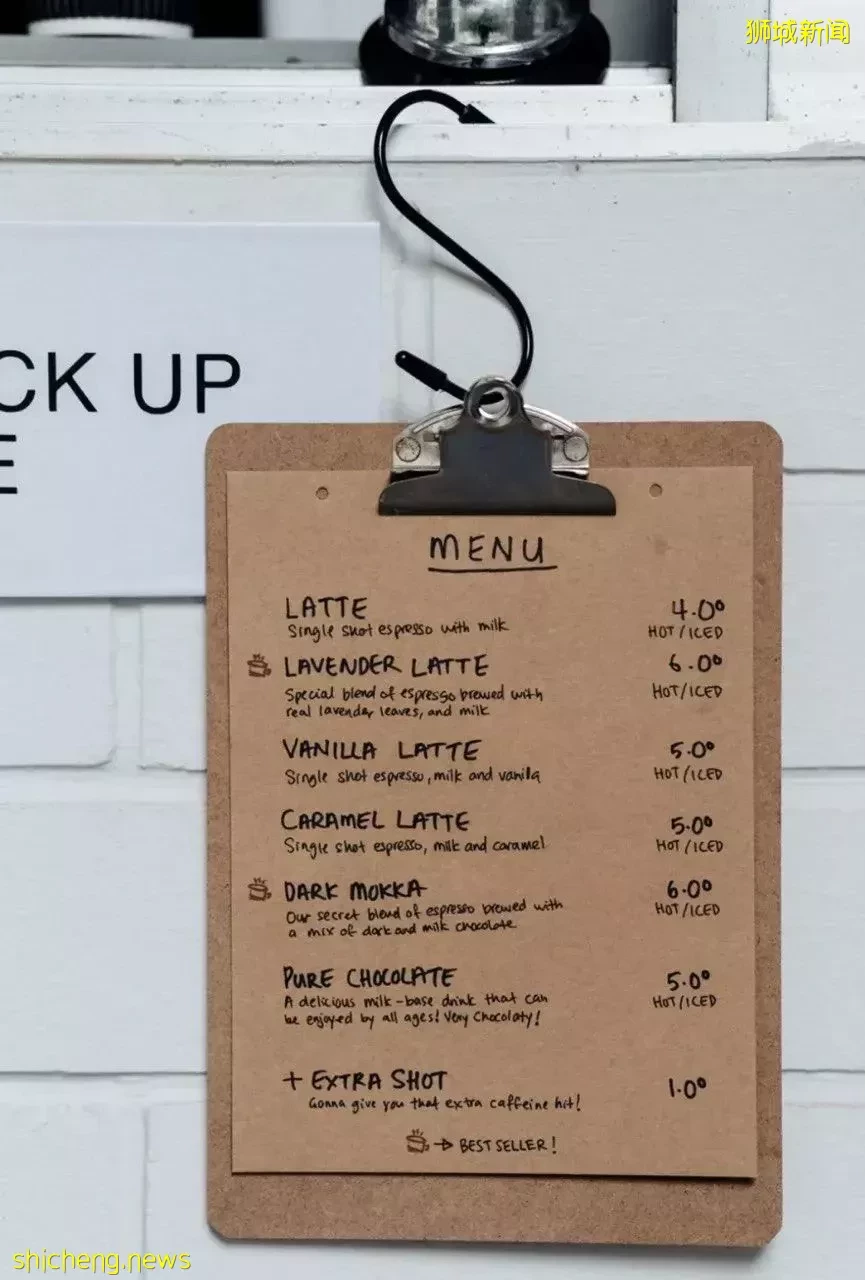 狮城新闻
CK UP
E
MENU
LATTE 4.00
Single shot espresso with milk HOT/ICED
LAVENDER LATTE 6.00
Special blend of espresso brewed with HOT/ICED
real lavender leaves, and milk
VANILLA LATTE 5.00
Single shot espresso, milk and vanilla HOT/ICED
CARAMEL LATTE 5.00
Single shot espresso, milk and caramel HOT/ICED
DARK MOKKA 6.00
Our secret blend of espresso brewed with HOT/ICED
a mix of dark and milk chocolate
PURE CHOCOLATE 5.00
A delicious milk-base drink that can HOT/ICED
be enjoyed by all ages! Very Chocolaty!
+ EXTRA SHOT 1.00
Gonna give you that extra caffeine hit!
→ BEST SELLER!
shicheng.news